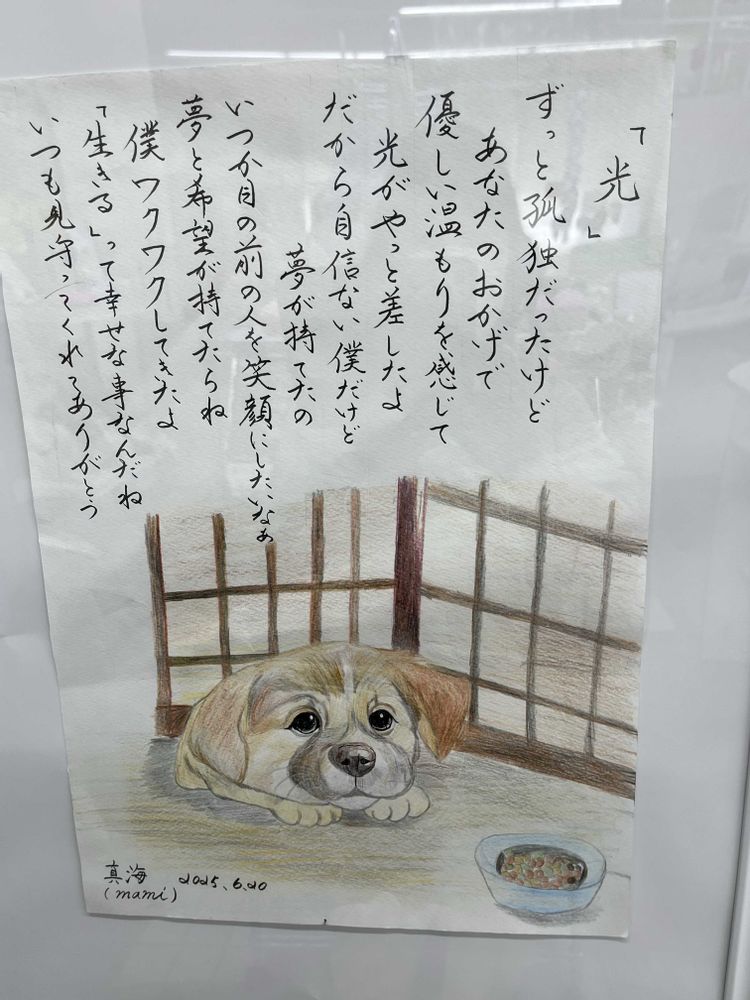 「光」
ずっと孤独だったけど
あなたのおかげで
優しい温もりを感じて
光がやっと差したよ
だから自信ない僕だけど
夢が持てたの
いつか目の前の人を笑顔にしたいなぁ
夢と希望が持てたらね
僕ワクワクしてきたよ
「生きる」って幸せな事なんだね
いつも見守ってくれてありがとう
真海 2025.6.20
(mami)